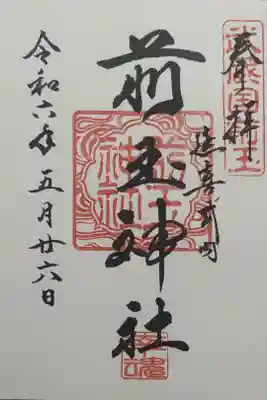 奉拝
延喜式内
前玉神社
前玉神社
幸魂
令和六年五月廿六日